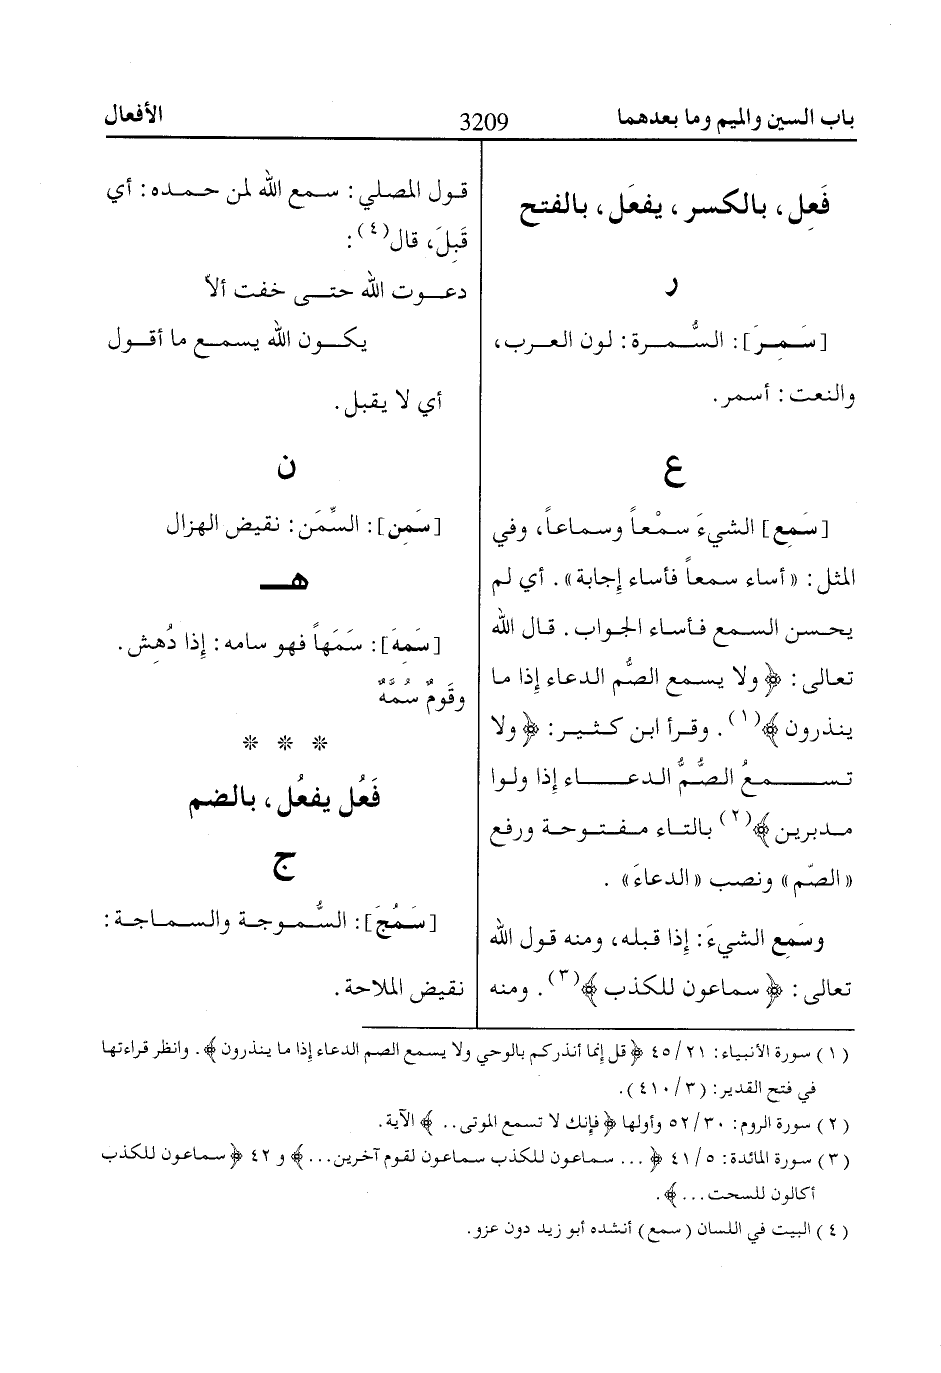 باب السين والميم وما بعدهما
3209
الأفعال
فَعِل، بالكسر، يفعَل، بالفتح
ر
[سَمِرَ]: السُّمرة: لون العرب،
والنعت: أسمر.
ع
[سَمِع] الشيءَ سمْعاً وسماعاً، وفي
المثل: «أساء سمعاً فأساء إجابة». أي لم
يحسن السمع فأساء الجواب. قال الله
تعالى: ﴿ولا يسمع الصُّم الدعاء إذا ما
ينذرون﴾(١). وقرأ ابن كثير: ﴿ولا
تسمعُ الصُّمُّ الدعاء إذا ولوا
مدبرين﴾(٢) بالتاء مفتوحة ورفع
«الصّم» ونصب «الدعاءَ».
وسَمِع الشيءَ: إذا قبله، ومنه قول الله
تعالى: ﴿سماعون للكذب﴾(٣). ومنه
قول المصلي: سمع الله لمن حمده: أي
قَبِلَ، قال(٤):
دعوت الله حتى خفت ألاّ
يكون الله يسمع ما أقول
أي لا يقبل.
ن
[سَمِن]: السِّمَن: نقيض الهزال
هـ
[سَمِهَ]: سَمَهاً فهو سامه: إذا دُهش.
وقَومٌ سُمَّهٌ
* * *
فَعُل يفعُل، بالضم
ج
[سَمُجَ]: السُّموجة والسماجة:
نقيض الملاحة.
(١) سورة الأنبياء: ٢١/ ٤٥ ﴿قل إنما أنذركم بالوحي ولا يسمع الصم الدعاء إذا ما ينذرون﴾. وانظر قراءتها
في فتح القدير: (٣/ ٤١٠).
(٢) سورة الروم: ٣٠/ ٥٢ وأولها ﴿فإنك لا تسمع الموتى..﴾ الآية.
(٣) سورة المائدة: ٥/ ٤١ ﴿... سماعون للكذب سماعون لقوم آخرين...﴾ و ٤٢ ﴿سماعون للكذب
أكالون للسحت...﴾.
(٤) البيت في اللسان (سمع) أنشده أبو زيد دون عزو.